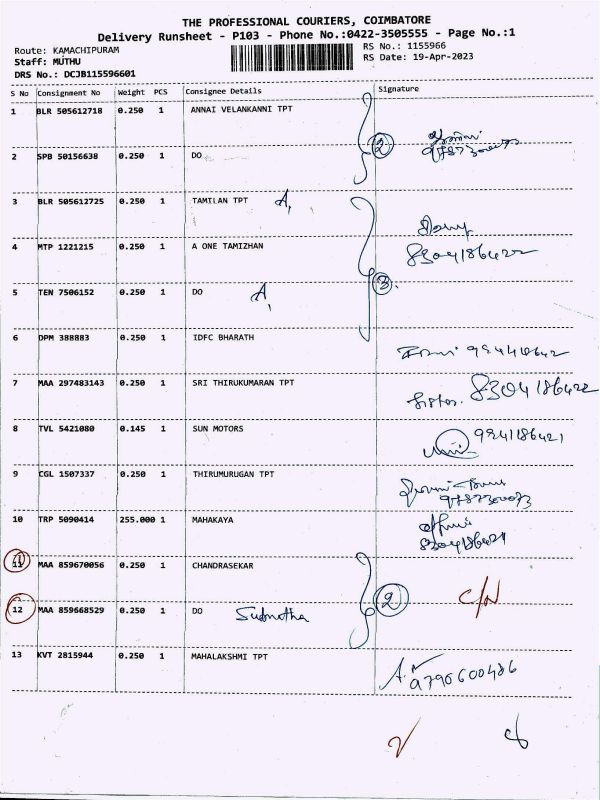 THE PROFESSIONAL COURIERS, COIMBATORE
Delivery Runsheet - P103 - Phone No.:0422-3505555 - Page No.:1
Route: KAMACHIPURAM
RS No.: 1155966
Staff: MUTHU
RS Date: 19-Apr-2023
DRS No.: DCJB115596601
S No Consignment No Weight PCS Consignee Details Signature
1 BLR 505612718 0.250 1 ANNAI VELANKANNI TPT
2
2 SPB 50156638 0.250 1 DO
3 BLR 505612725 0.250 1 TAMILAN TPT A,
4 MTP 1221215 0.250 1 A ONE TAMIZHAN 8304186422
5 TEN 7506152 0.250 1 DO A,
3.
6 DPM 388883 0.250 1 IDFC BHARATH
7 MAA 297483143 0.250 1 SRI THIRUKUMARAN TPT 8304186422
8 TVL 5421080 0.145 1 SUN MOTORS 9941186421
9 CGL 1507337 0.250 1 THIRUMURUGAN TPT
10 TRP 5090414 255.000 1 MAHAKAYA 8304186421
11 MAA 859670056 0.250 1 CHANDRASEKAR
12 MAA 859668529 0.250 1 DO 2 C/N
13 KVT 2815944 0.250 1 MAHALAKSHMI TPT 9790600486